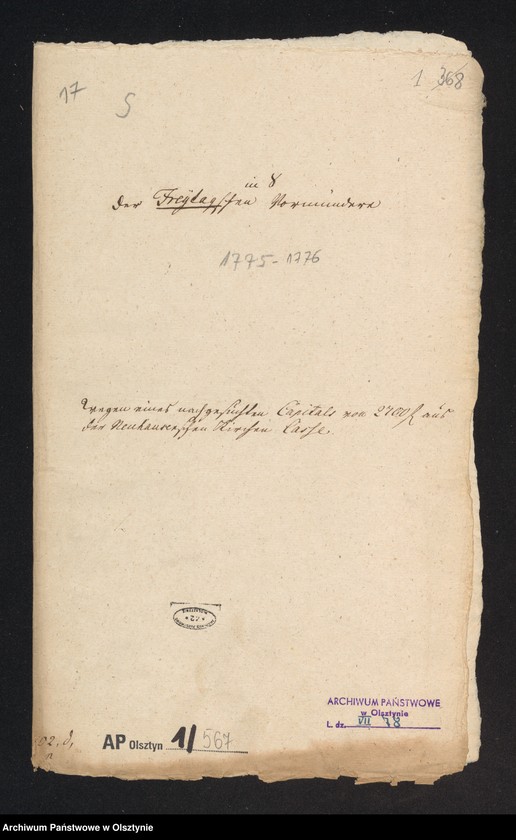 17
S
1 368
in 8
der Freytagschen Vormündere
1775-1776
Wegen eines nachgesuchten Capitals von 2700 f aus
der Neuhausenschen Kirchen Casse.
ARCHIWUM PAŃSTWOWE
w Olsztynie
L. dz. VII 78
02. d,
AP Olsztyn 1/567
Archiwum Państwowe w Olsztynie
Archiwum Państwowe w Olsztynie